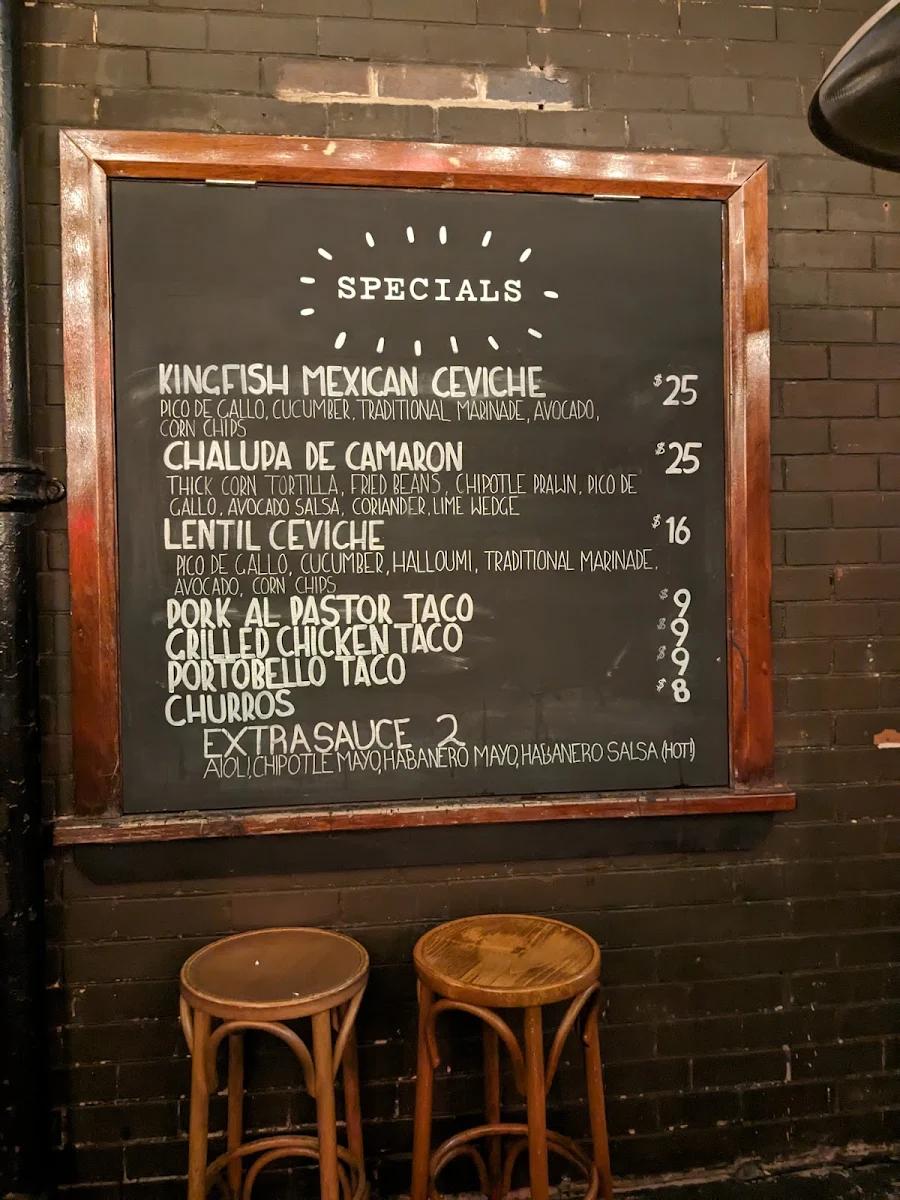 SPECIALS
KINGFISH MEXICAN CEVICHE $25
PICO DE GALLO, CUCUMBER, TRADITIONAL MARINADE, AVOCADO,
CORN CHIPS
CHALUPA DE CAMARON $25
THICK CORN TORTILLA, FRIED BEANS, CHIPOTLE PRAWN, PICO DE
GALLO, AVOCADO SALSA, CORIANDER, LIME WEDGE
LENTIL CEVICHE $16
PICO DE GALLO, CUCUMBER, HALLOUMI, TRADITIONAL MARINADE,
AVOCADO, CORN CHIPS
PORK AL PASTOR TACO $9
GRILLED CHICKEN TACO $9
PORTOBELLO TACO $9
CHURROS $8
EXTRA SAUCE 2
AIOLI, CHIPOTLE MAYO, HABANERO MAYO, HABANERO SALSA (HOT!)